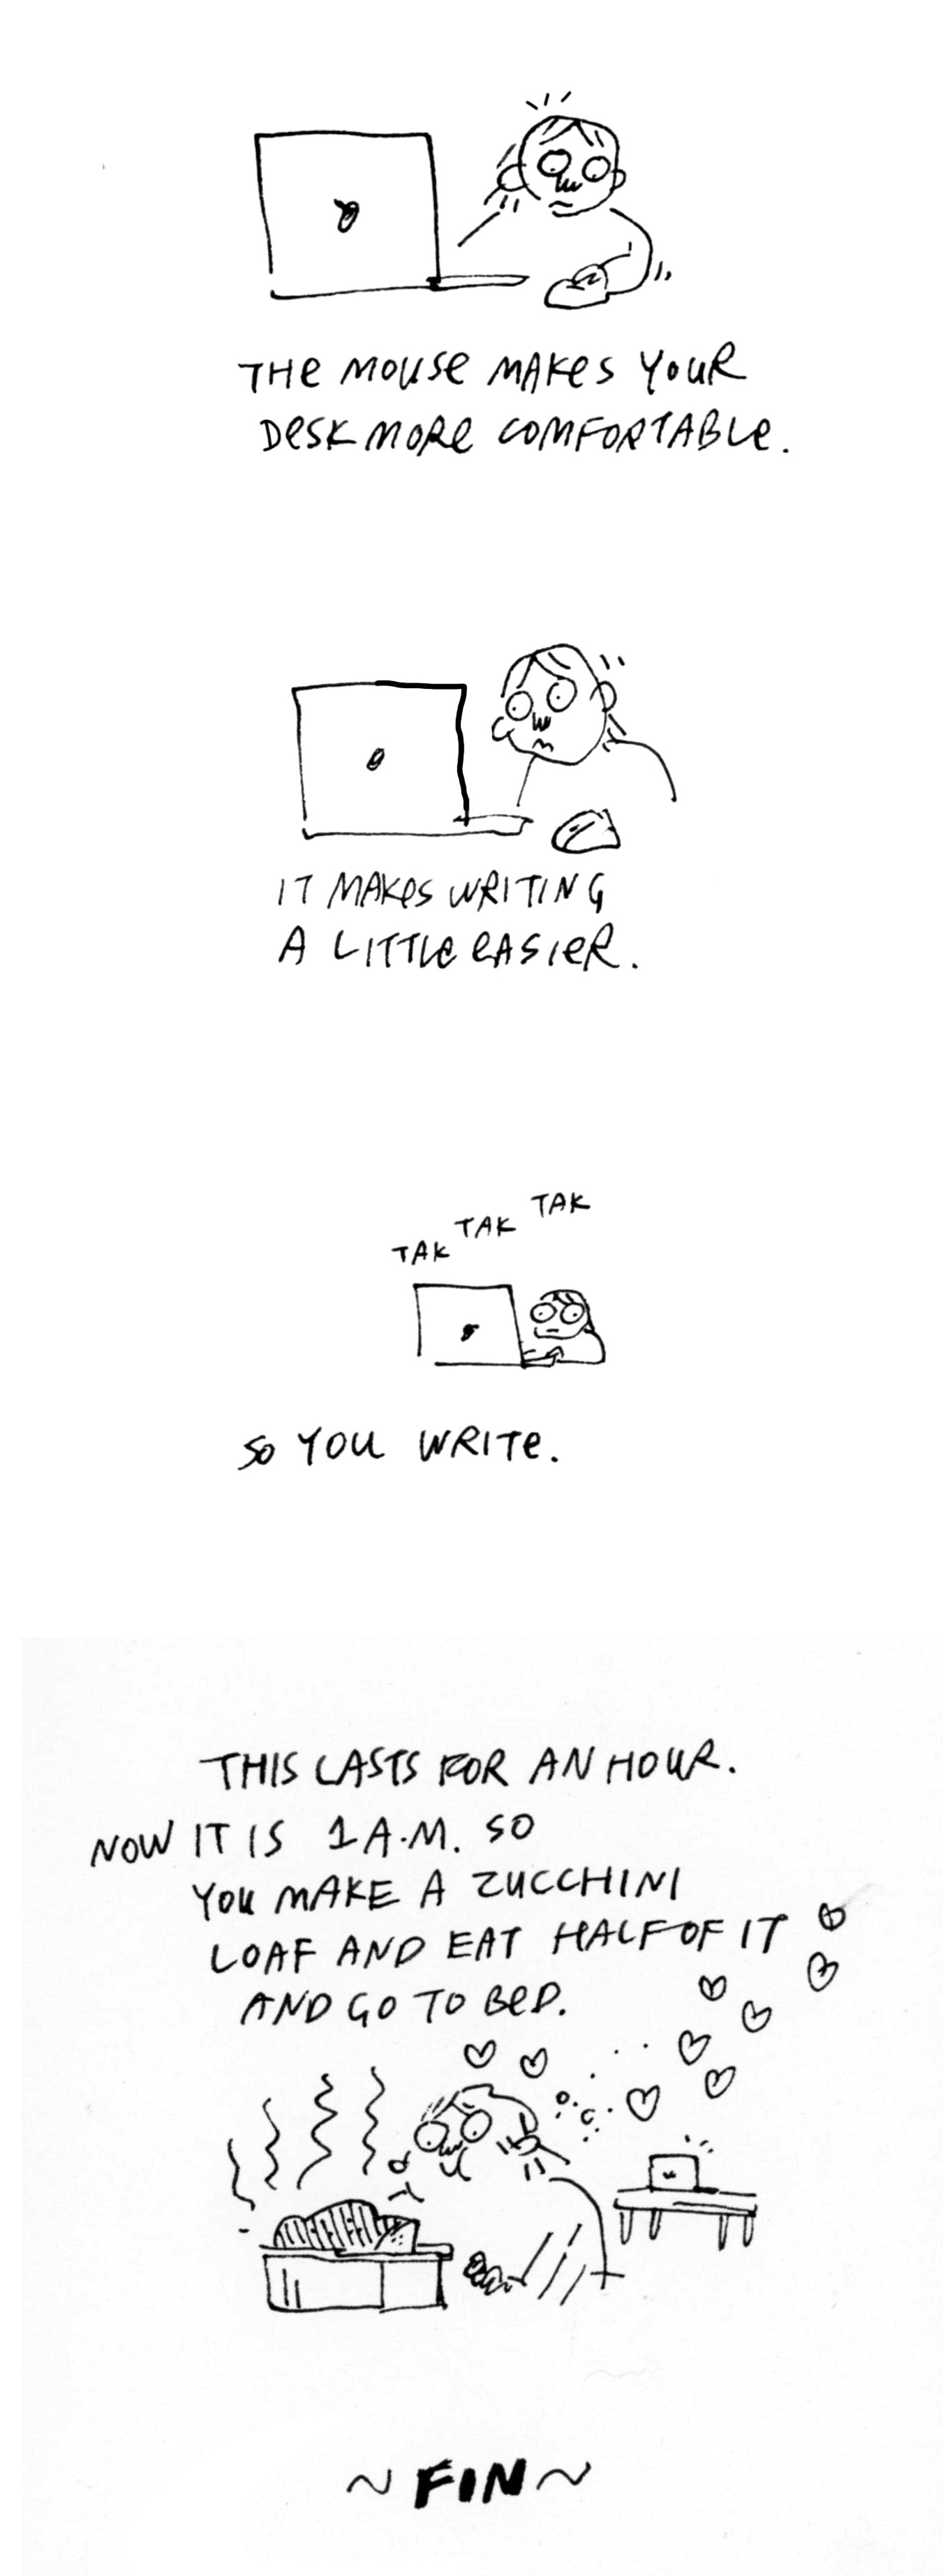 THE MOUSE MAKES YOUR
DESK MORE COMFORTABLE.
IT MAKES WRITING
A LITTLE EASIER.
TAK TAK TAK
SO YOU WRITE.
THIS LASTS FOR AN HOUR.
NOW IT IS 1 A.M. SO
YOU MAKE A ZUCCHINI
LOAF AND EAT HALF OF IT
AND GO TO BED.
~ FIN ~